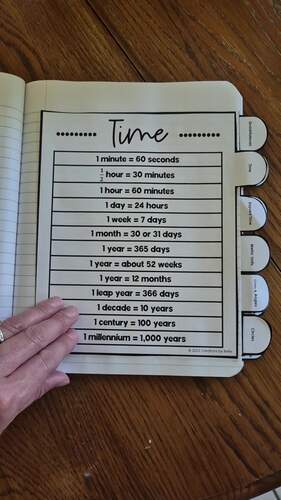 Time
1 minute = 60 seconds
½ hour = 30 minutes
1 hour = 60 minutes
1 day = 24 hours
1 week = 7 days
1 month = 30 or 31 days
1 year = 365 days
1 year = about 52 weeks
1 year = 12 months
1 leap year = 366 days
1 decade = 10 years
1 century = 100 years
1 millennium = 1,000 years
Time
Circles